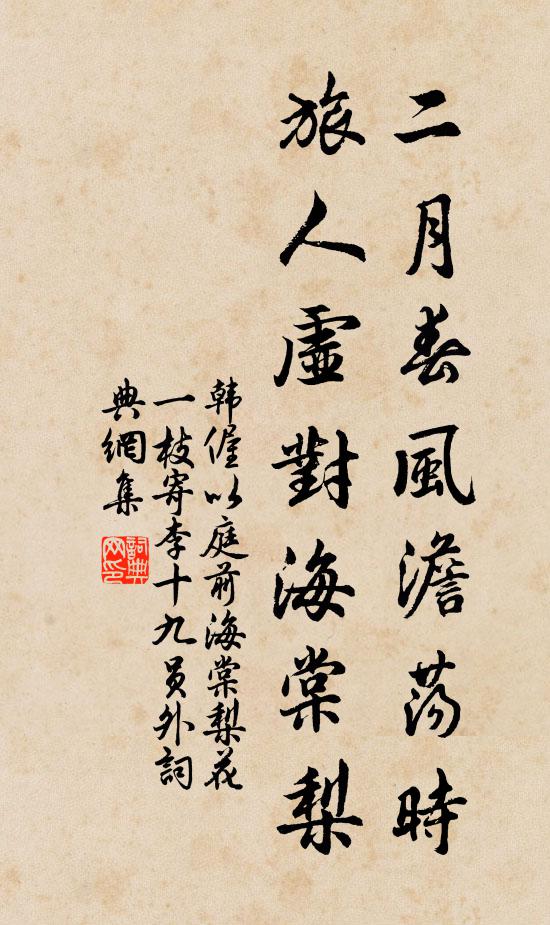 二月春風澹蕩時
旅人虛對海棠梨
韩偓以庭前海棠梨花
一枝寄李十九員外詞
典網集
詞典网印